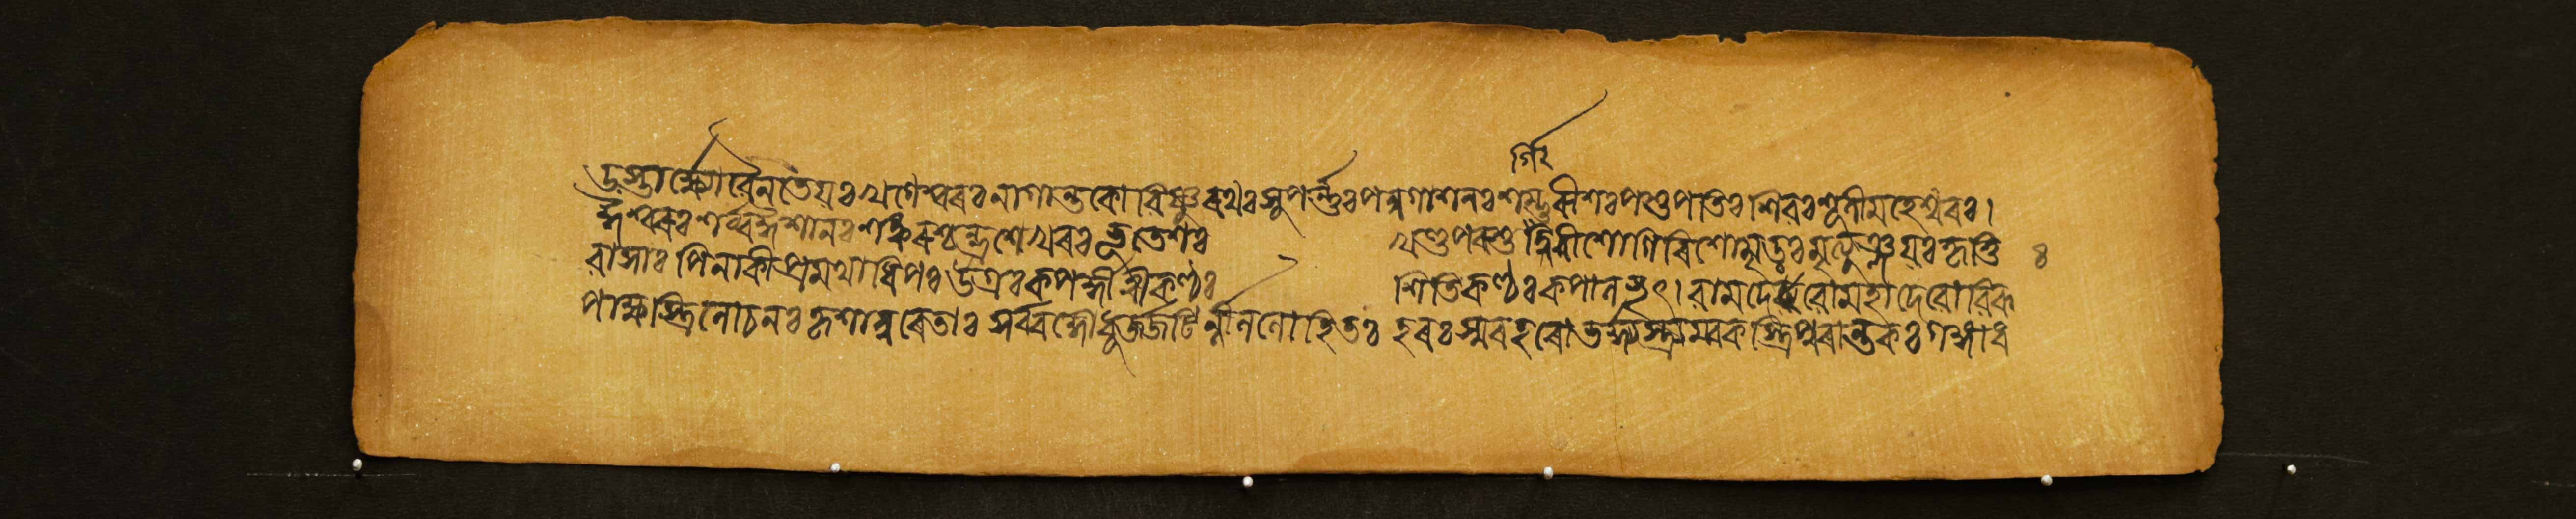 র্গিৰ
ডস্তাৰ্ক্ষ্যো বৈনতেয়ঃ খগেশ্বৰঃ নাগান্তকো বিষ্ণুৰথঃ সুপৰ্ণ্ণঃ পন্নগাশনঃ শম্ভুৰীশঃ পশুপতিঃ শিবঃ শূলী মহেশ্বৰঃ।
ঈশ্বৰঃ শৰ্ব্ব ঈশানঃ শঙ্কৰশ্চন্দ্রশেখৰঃ ভূতেশঃ খণ্ডপৰশু গিৰীশো গিৰিশো মৃডঃ মৃত্যুঞ্জয়ঃ কৃত্তি ৪
বাসাঃ পিনাকী প্রমথাধিপঃ উগ্রঃ কপৰ্দ্দী শ্রীকণ্ঠঃ শিতিকণ্ঠঃ কপালভৃৎ। বামদেবো মহাদেবো বিৰূ
পাক্ষস্ত্রিলোচনঃ কৃশানুৰেতাঃ সৰ্ব্বজ্ঞো ধূৰ্জ্জটিৰ্ন্নীললোহিতঃ হৰঃ স্মৰহৰো ভৰ্গ্গস্ত্র্যম্বকস্ত্রিপুৰান্তকঃ গঙ্গাধ